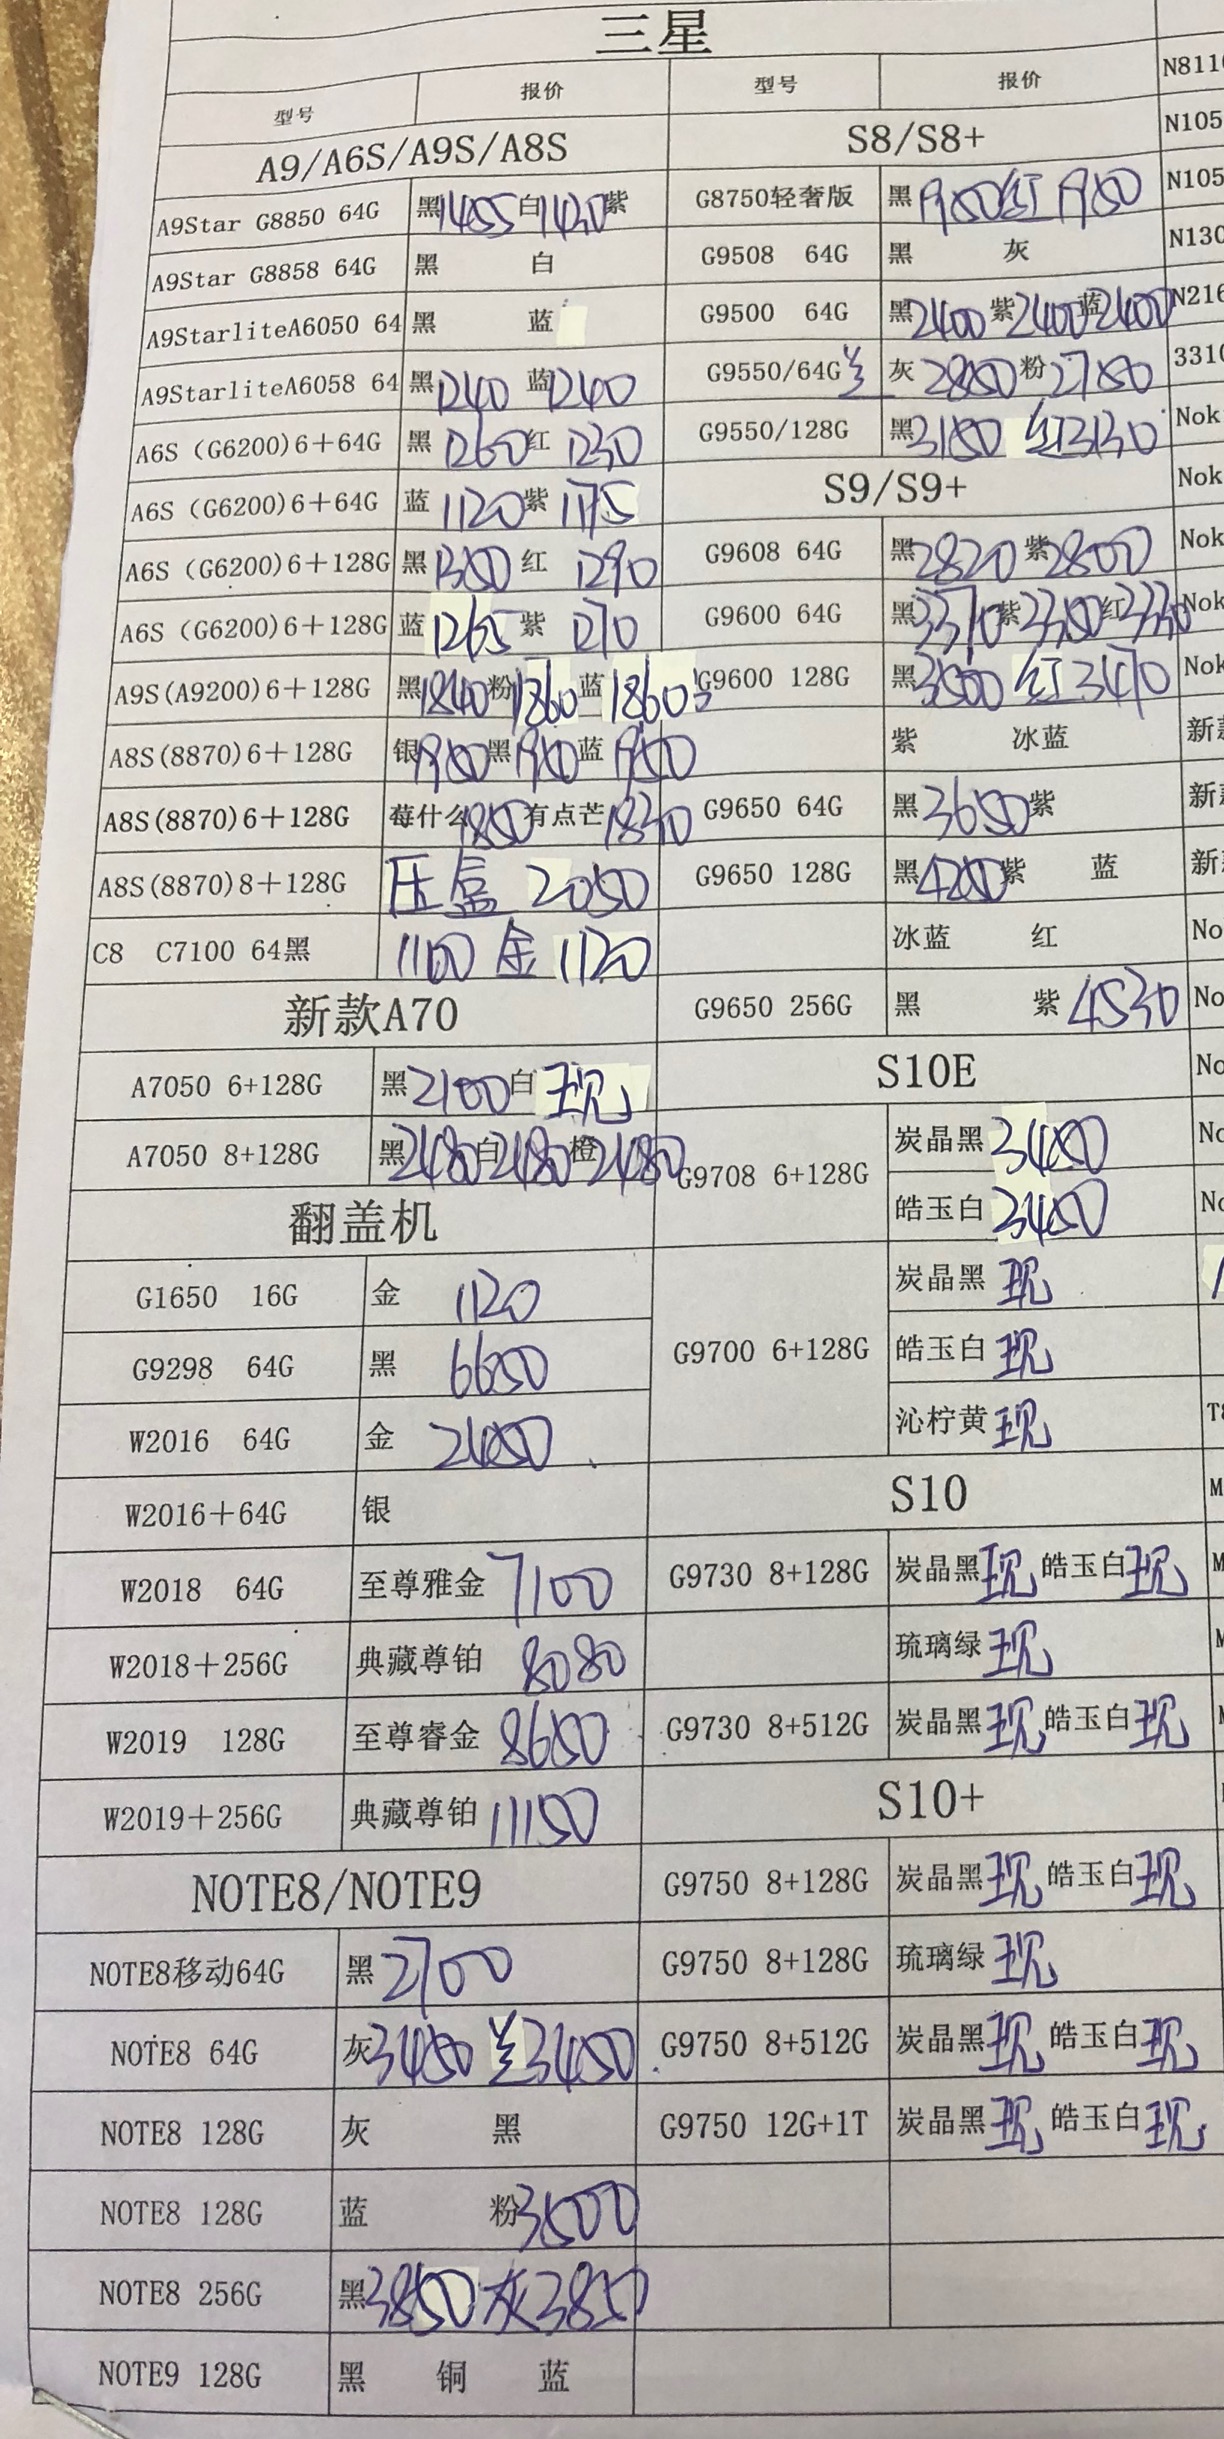 三星
型号 报价 型号 报价
A9/A6S/A9S/A8S S8/S8+
A9Star G8850 64G 黑1455白1430紫 G8750轻奢版 黑1950红1950
A9Star G8858 64G 黑 白 G9508 64G 黑 灰
A9StarliteA6050 64 黑 蓝 G9500 64G 黑2400紫2400蓝2400
A9StarliteA6058 64 黑1240 蓝1240 G9550/64G 兰 灰2850粉2750
A6S(G6200)6+64G 黑1260红1230 G9550/128G 黑3150 红3130
A6S(G6200)6+64G 蓝1120紫1175 S9/S9+
A6S(G6200)6+128G 黑1350红1290 G9608 64G 黑2820紫2800
A6S(G6200)6+128G 蓝1265紫1270 G9600 64G 黑3370紫3350红3330
A9S(A9200)6+128G 黑1840粉1860蓝1860 G9600 128G 黑3500红3470
A8S(8870)6+128G 银1950黑1950蓝1950 紫 冰蓝
A8S(8870)6+128G 莓什么1850有点芒1830 G9650 64G 黑3650紫
A8S(8870)8+128G 压盒 2050 G9650 128G 黑4250紫 蓝
C8 C7100 64黑 1100 金 1120 冰蓝 红
新款A70 G9650 256G 黑 紫4530
A7050 6+128G 黑2100白现 S10E
A7050 8+128G 黑2480白2480橙2480 G9708 6+128G 炭晶黑3450
皓玉白3450
翻盖机
G1650 16G 金 1120 炭晶黑现
G9298 64G 黑 6650 G9700 6+128G 皓玉白现
W2016 64G 金 2450 沁柠黄现
W2016+64G 银 S10
W2018 64G 至尊雅金 7100 G9730 8+128G 炭晶黑现 皓玉白现
W2018+256G 典藏尊铂 8080 琉璃绿现
W2019 128G 至尊睿金 8650 G9730 8+512G 炭晶黑现皓玉白现
W2019+256G 典藏尊铂 11150 S10+
NOTE8/NOTE9 G9750 8+128G 炭晶黑现 皓玉白现
NOTE8移动64G 黑2700 G9750 8+128G 琉璃绿现
NOTE8 64G 灰3450 兰3450 G9750 8+512G 炭晶黑现 皓玉白现
NOTE8 128G 灰 黑 G9750 12G+1T 炭晶黑现 皓玉白现
NOTE8 128G 蓝 粉3500
NOTE8 256G 黑3850灰3850
NOTE9 128G 黑 铜 蓝